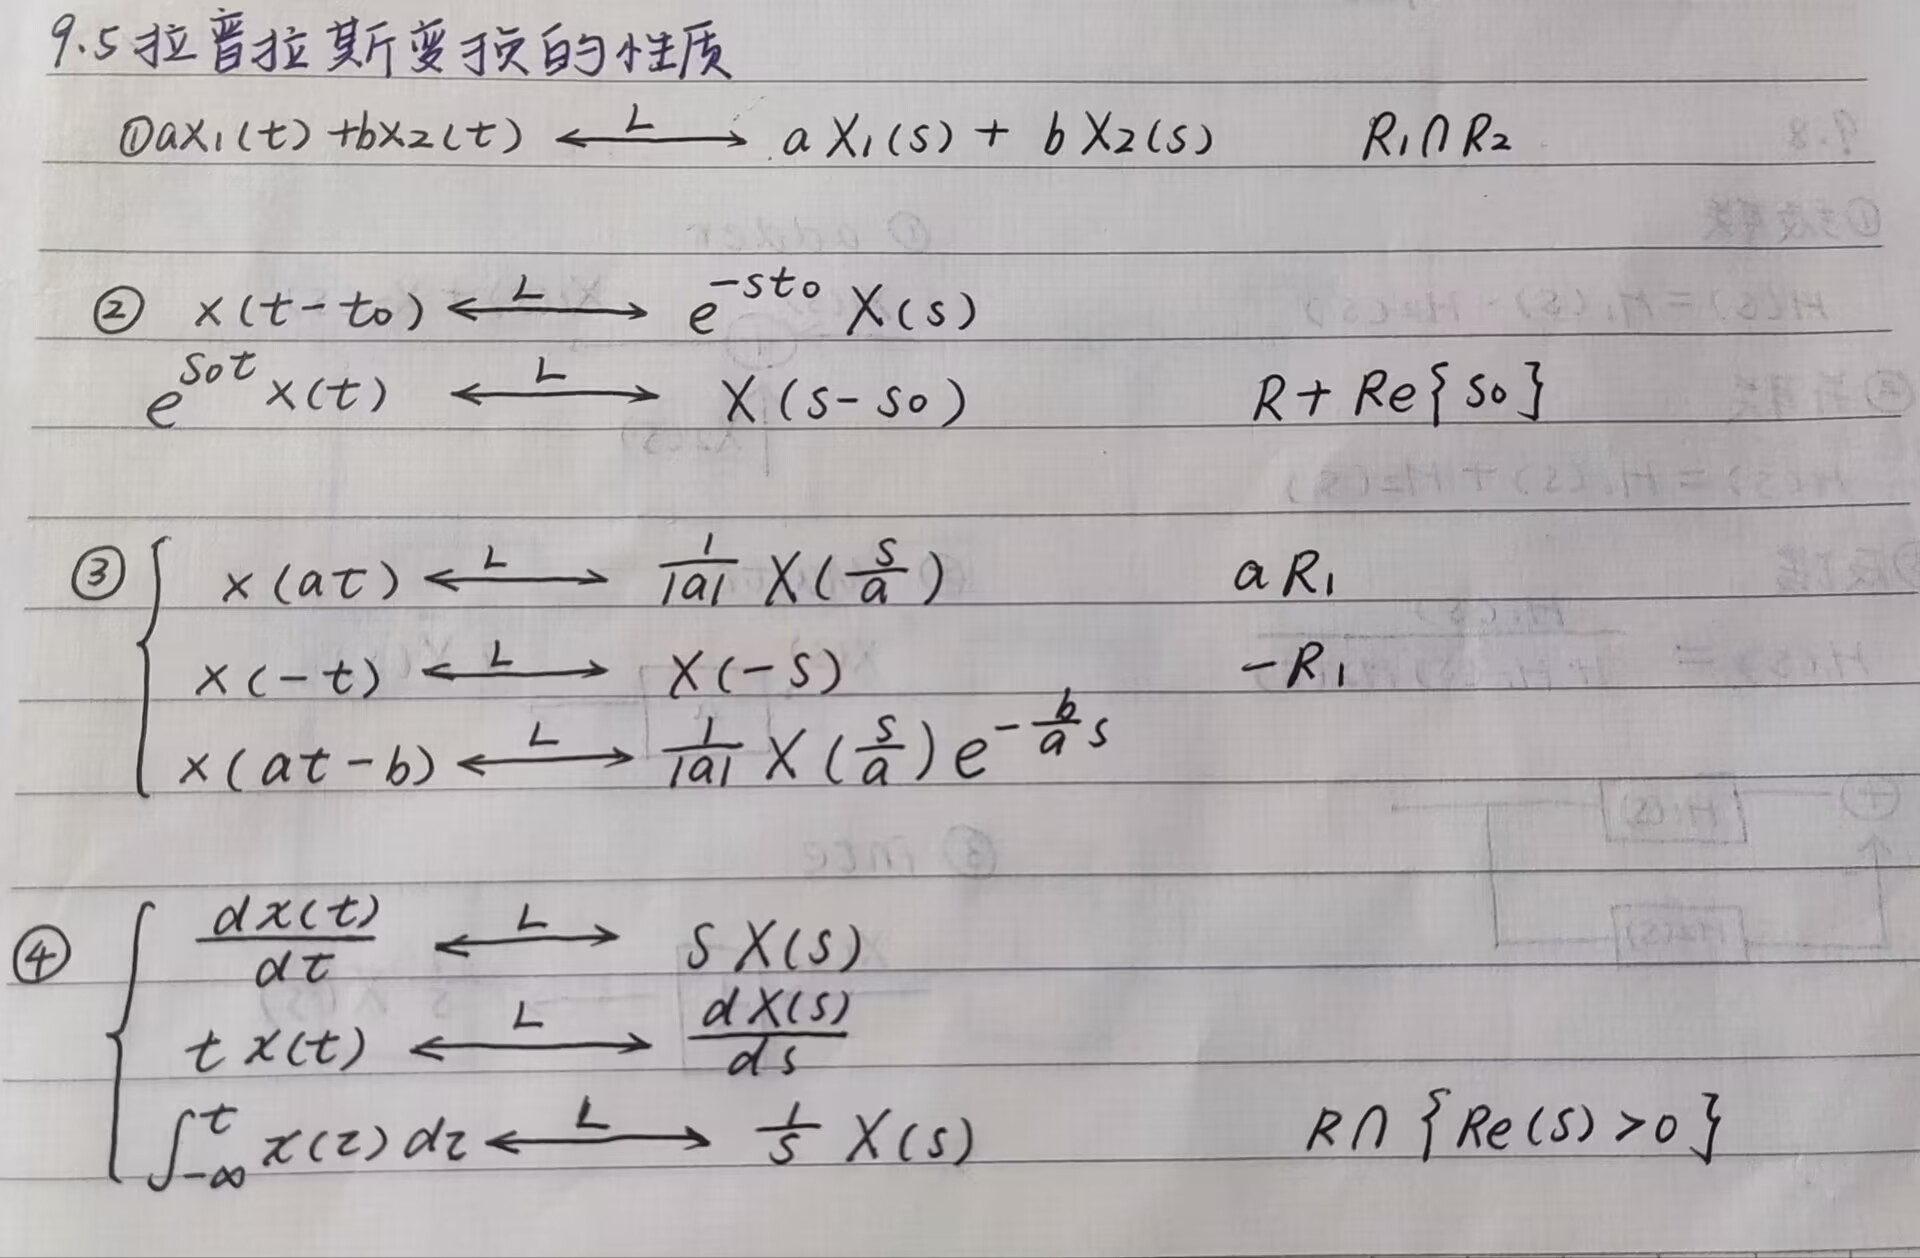 9.5拉普拉斯变换的性质
①ax₁(t)+bx₂(t) ←L→ aX₁(s)+bX₂(s) R₁∩R₂
② x(t-t₀) ←L→ e^{-st₀} X(s)
e^{s₀t} x(t) ←L→ X(s-s₀) R+Re{s₀}
③ x(at) ←L→ 1/|a| X(s/a) aR₁
x(-t) ←L→ X(-s) -R₁
x(at-b) ←L→ 1/|a| X(s/a) e^{-b/a s}
④ dx(t)/dt ←L→ sX(s)
tx(t) ←L→ dX(s)/ds
∫_{-∞}^{t} x(τ)dτ ←L→ 1/s X(s) R∩{Re(s)>0}